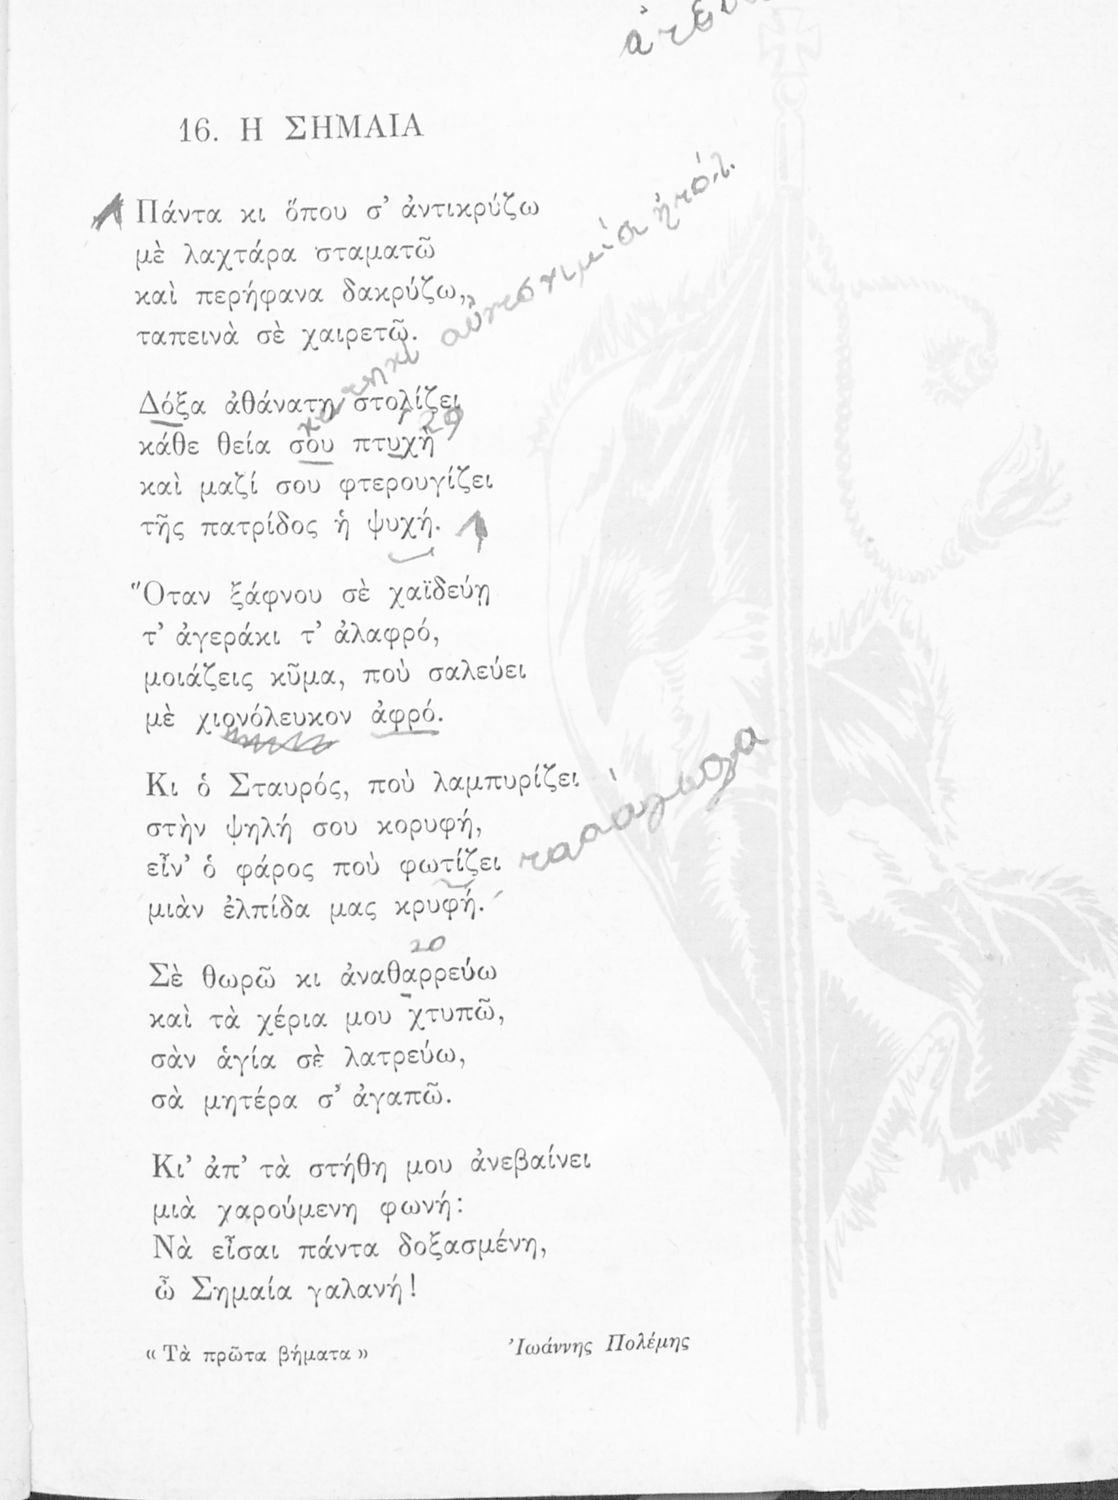 16. Η ΣΗΜΑΙΑ
Πάντα κι ὅπου σ' ἀντικρύζω
μὲ λαχτάρα σταματῶ
καὶ περήφανα δακρύζω,
ταπεινὰ σὲ χαιρετῶ.
Δόξα ἀθάνατη στολίζει
20
κάθε θεία σου πτυχὴ
καὶ μαζί σου φτερουγίζει
τῆς πατρίδος ἡ ψυχή.
Ὅταν ξάφνου σὲ χαϊδεύῃ
τ' ἀγεράκι τ' ἀλαφρό,
μοιάζεις κῦμα, ποὺ σαλεύει
μὲ χιονόλευκον ἀφρό.
Κι ὁ Σταυρός, ποὺ λαμπυρίζει
στὴν ψηλή σου κορυφή,
εἶν' ὁ φάρος ποὺ φωτίζει
μιὰν ἐλπίδα μας κρυφή.
20
Σὲ θωρῶ κι ἀναθαρρεύω
καὶ τὰ χέρια μου χτυπῶ,
σὰν ἁγία σὲ λατρεύω,
σὰ μητέρα σ' ἀγαπῶ.
Κι' ἀπ' τὰ στήθη μου ἀνεβαίνει
μιὰ χαρούμενη φωνή:
Νὰ εἶσαι πάντα δοξασμένη,
ὦ Σημαία γαλανή!
« Τὰ πρῶτα βήματα » Ἰωάννης Πολέμης